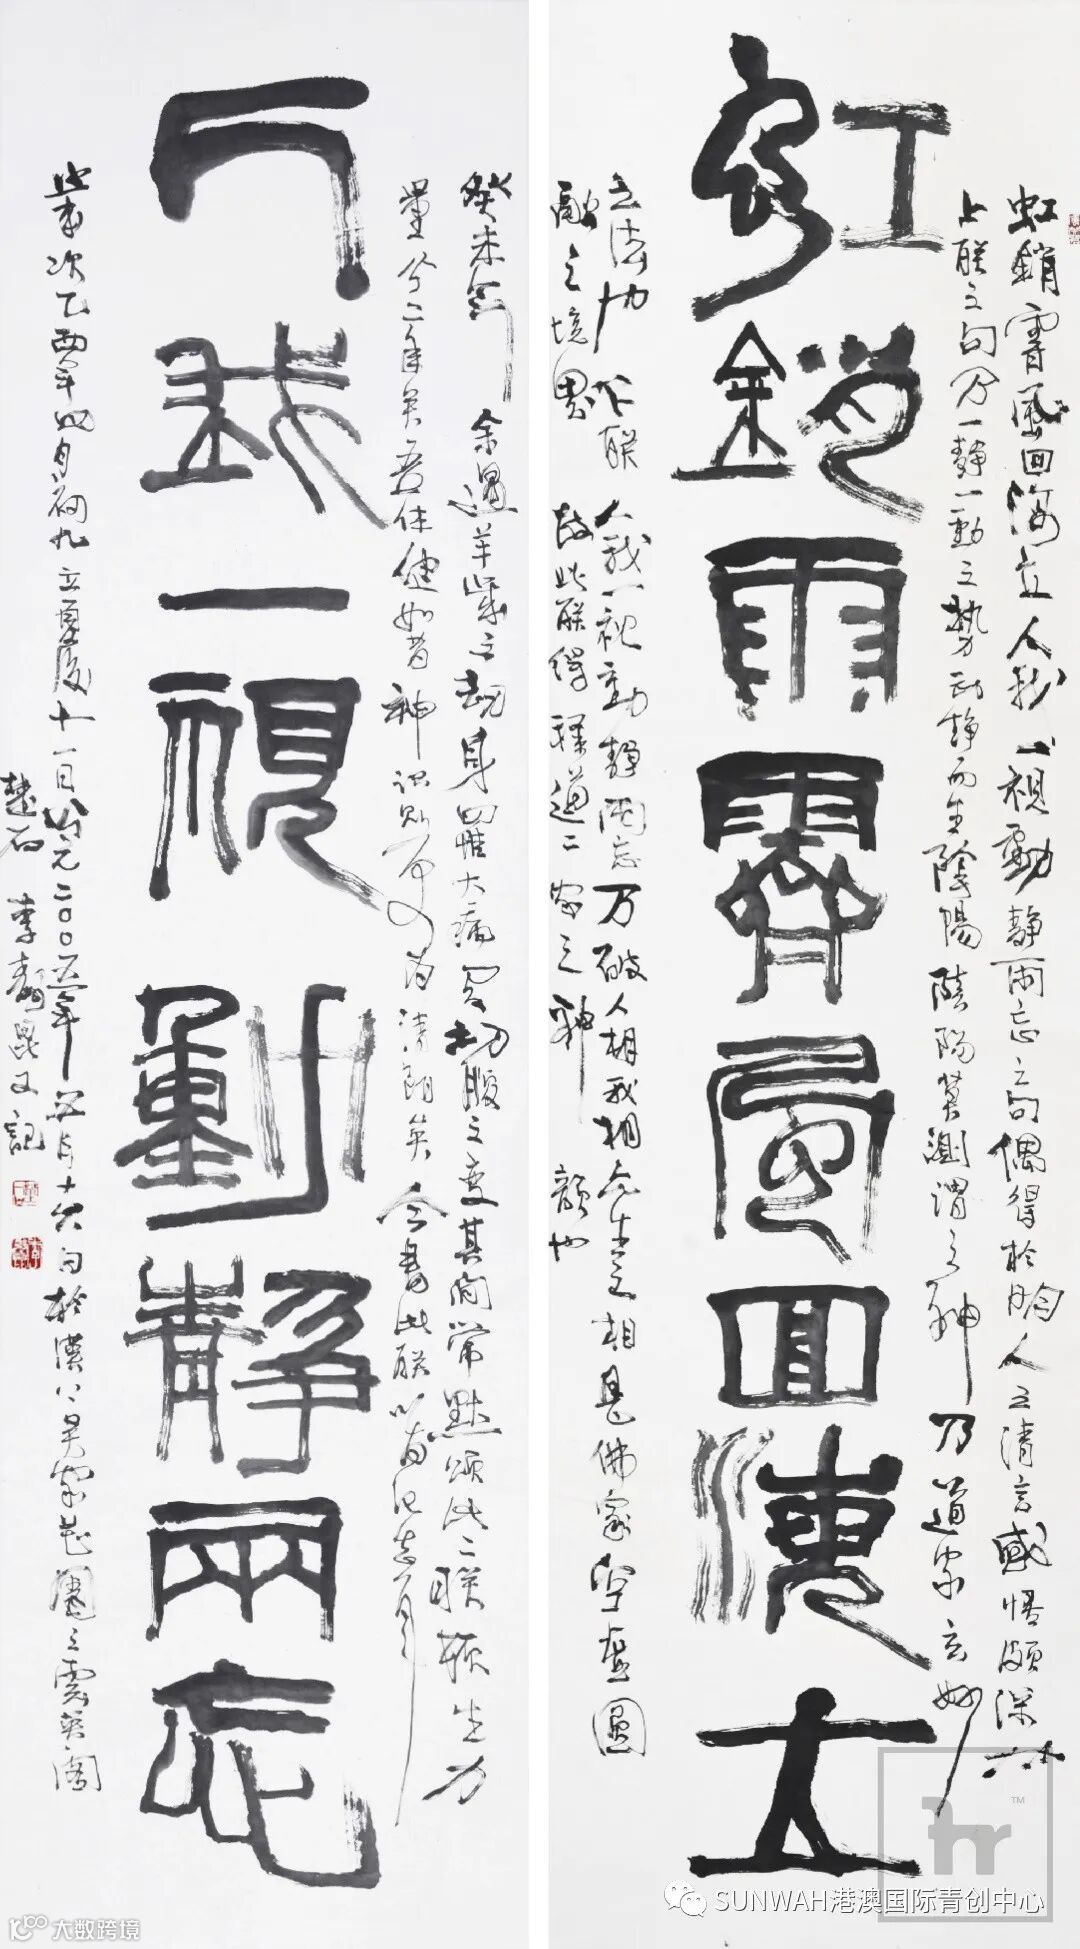 虹銷雨霽風回海立
虹銷霽風回海立人我一視動靜兩忘之句偶得於明人之清言感悟頗深
上联之句乃一靜一動之势动静而生陰陽陰陽莫測謂之神乃道家玄妙
之法力下联人我一视動靜兩忘乃破人相我相众生之相是佛家空虚圆
融之境界故此联得释道二家之神韻也
人我一視動靜兩忘
癸未年余遇羊柴之劫身罹大病又切腹之变其间常默颂此二联振生力
量今二年矣吾体健如昔神识则为清朗矣今書此联以為记
歲次乙酉年四月初九立夏後十一日公元二00五年五月十六日於漢口吴家花園之雲英阁
楚石李又記
SUNWAH港澳国际青创中心
大数跨境
hr
TM